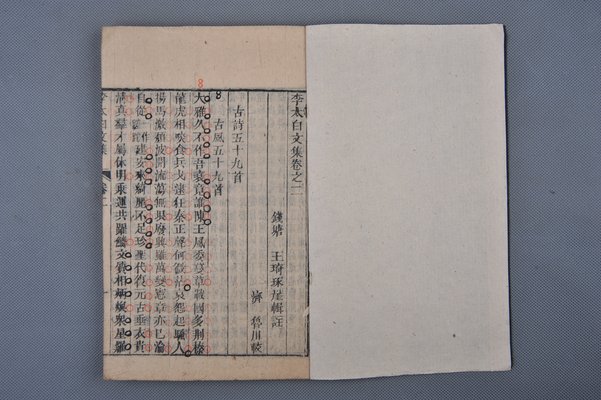 李太白文集卷之二
錢塘 王琦琢崖輯註
濟 魯川較
古詩五十九首
古風五十九首
大雅久不作吾衰竟誰陳王風委蔓草戰國多荆榛
龍虎相啖食兵戈逮狂秦正聲何微茫哀怨起騷人
揚馬激頽波開流蕩無垠廢興雖萬變憲章亦已淪
自從建安來綺麗不足珍聖代復元古垂衣貴
清真羣才屬休明乘運共躍鱗文質相炳煥衆星羅
李太白文集 卷二